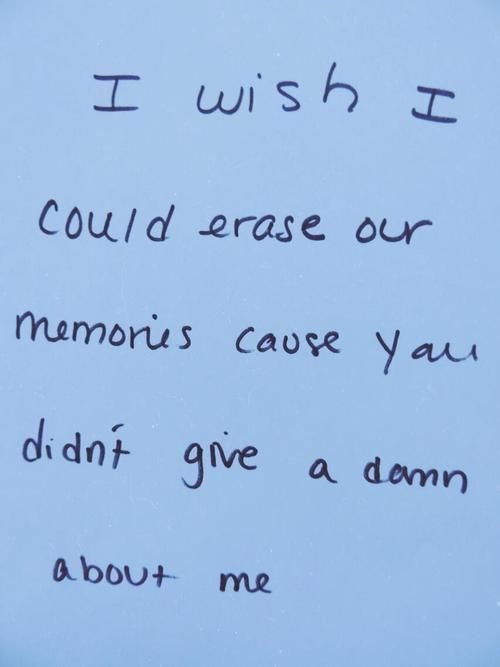 I wish I
could erase our
memories cause you
didn't give a damn
about me